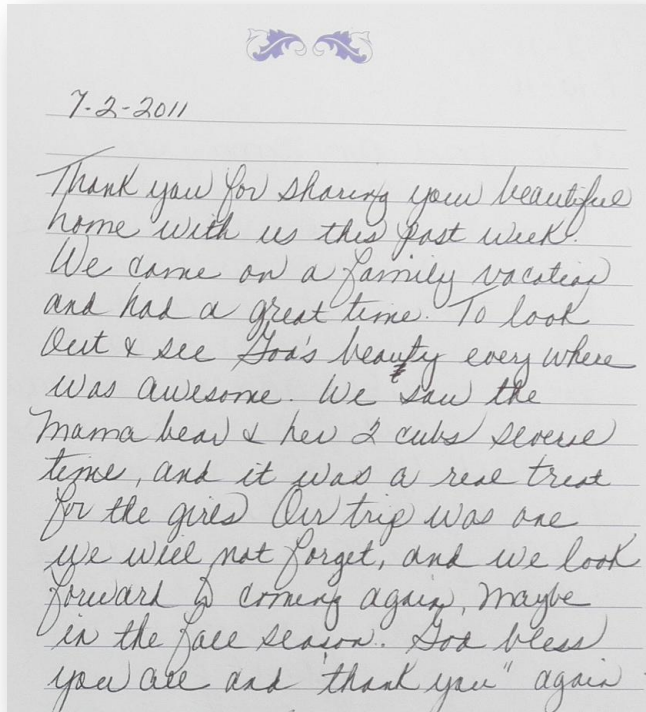 7-2-2011
Thank you for sharing your beautiful
home with us this past week.
We came on a family vacation
and had a great time. To look
Out & see God's beauty every where
was awesome. We saw the
Mama bear & her 2 cubs several
time, and it was a real treat
for the girls Our trip was one
we will not forget, and we look
forward to coming again, Maybe
in the fall season. God bless
you all and "thank you" again